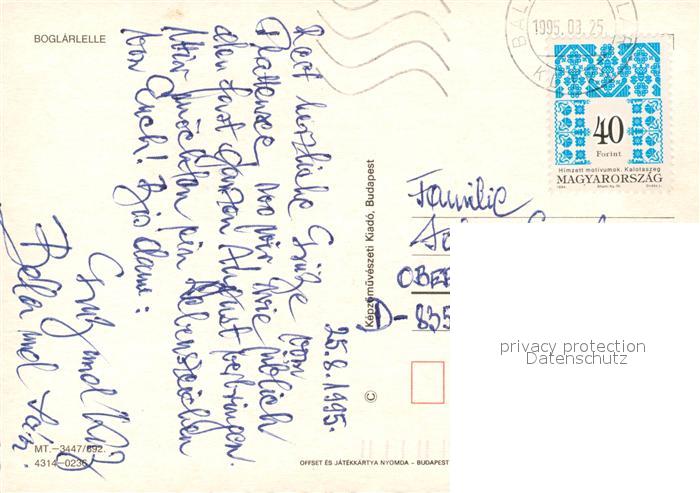 BOGLÁRLELLE
25.8.1995.
Recht herzliche Grüße vom
Plattensee, wo wir wie üblich
den fast ganzen August verbringen.
Wir möchten ein Lebenszeichen
von Euch! Bis dann:
Gruß und
Bella und
MT.—3447/892.
4314-0236
Képzőművészeti Kiadó, Budapest
©
OFFSET ÉS JÁTÉKKÁRTYA NYOMDA – BUDAPEST
1995.03.25.
40
Forint
Hímzett motívumok. Kalotaszeg
MAGYARORSZÁG
Familie
OBER
D-835
privacy protection
Datenschutz